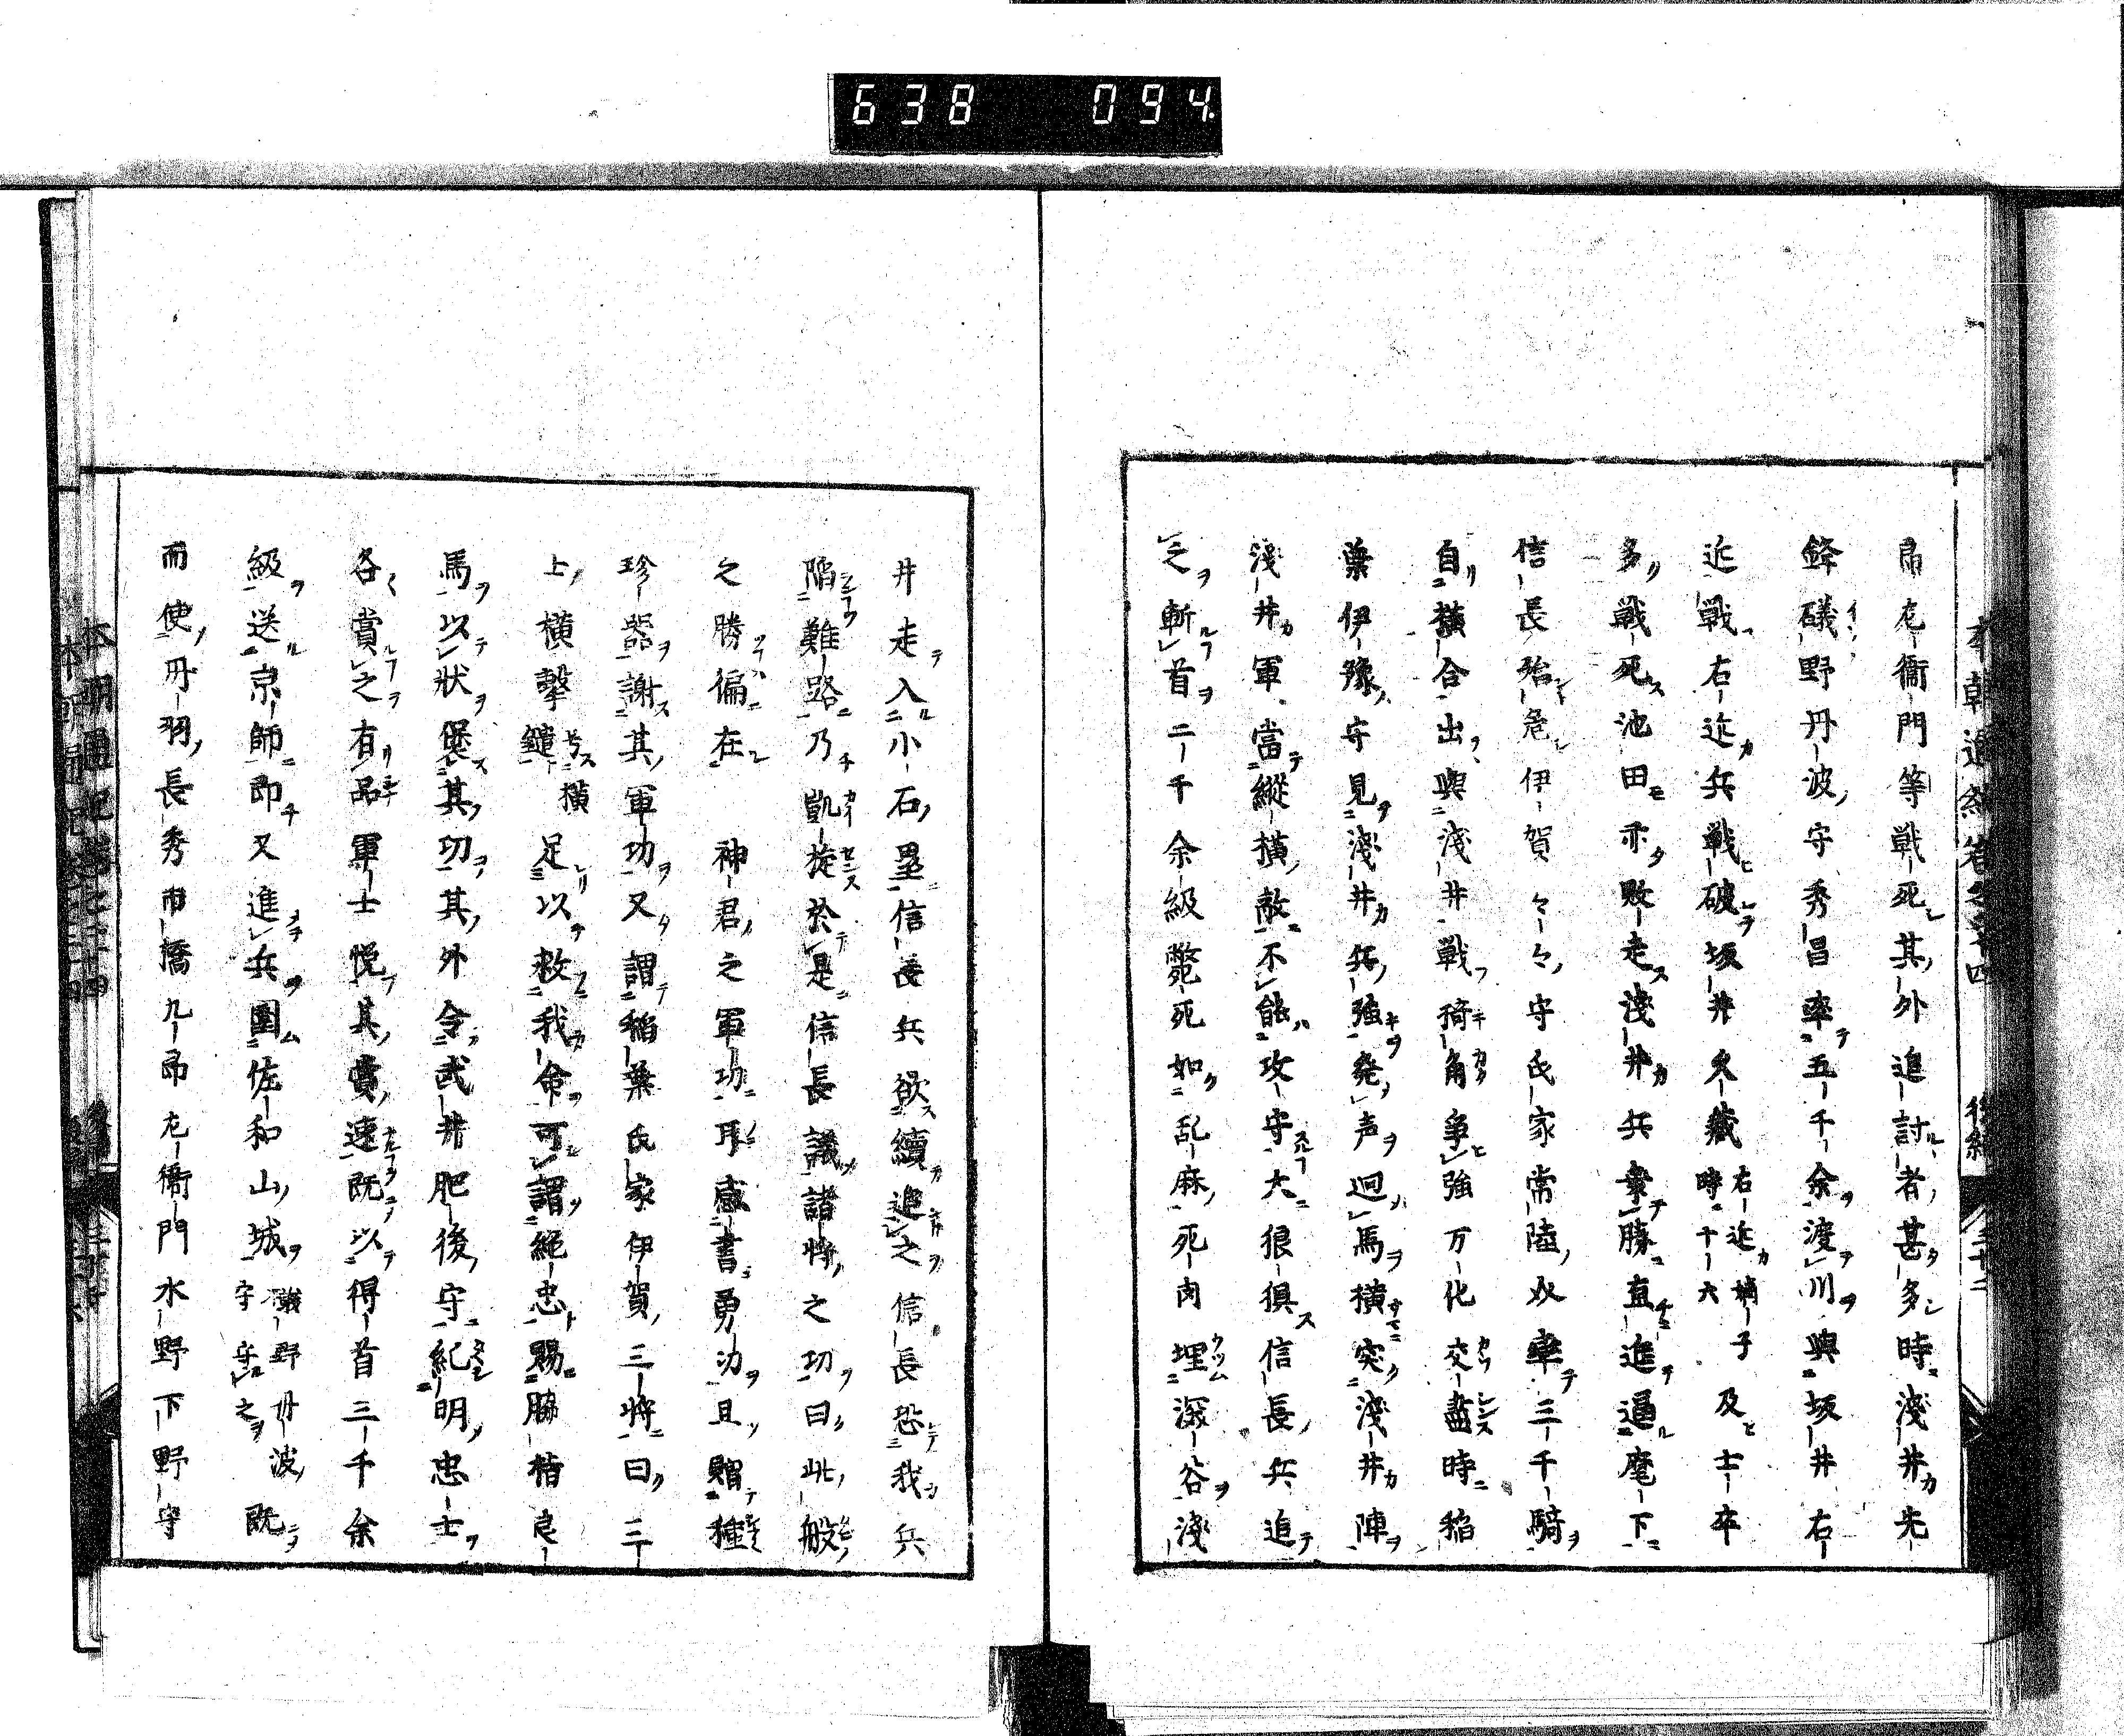 638 094
帍左衞門等戦死其外追討者甚多時淺井先
鋒礒野丹波守秀昌率五千余渡川與坂井右
近戦右近兵戦破坂井久藏右近嫡子時十六及士卒
多戦死池田亦敗走淺井兵乗勝直進逼麾下
信長殆危伊賀々々守氏家常陸以率三千騎
自横合出與淺井戦掎角争強万化交盡時稲
葉伊豫守見淺井兵強発声廻馬横突淺井陣
淺井軍當縱横敵不能攻守大狼狽信長兵追
之斬首二千余級斃死如乱麻死肉埋深谷淺
井走入小石壘信長兵欲續追之信長恐我兵
陷難路乃凱旋於是信長議諸将之功曰此般
之勝偏在 神君之軍功耳感書勇功且贈種
珍器謝其軍功又謂稲葉氏家伊賀三将曰三
士横撃鑓横足以救我命可謂絶忠賜脇楷良
馬以状褒其功其外令武井肥後守紀明忠士
各賞之有品軍士悦其賞速既以得首三千余
級送京師即又進兵圍佐和山城礒野丹波守守之既
而使丹羽長秀市橋九郎左衞門水野下野守